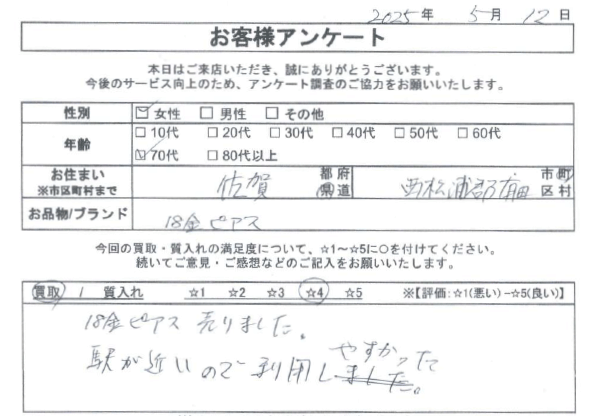 2025年 5月 12日
お客様アンケート
本日はご来店いただき、誠にありがとうございます。
今後のサービス向上のため、アンケート調査のご協力をお願いいたします。
性別 ☑女性 □男性 □その他
年齢 □10代 □20代 □30代 □40代 □50代 □60代
☑70代 □80代以上
お住まい ※市区町村まで 佐賀 都府県道 西松浦郡有田 市町区村
お品物/ブランド 18金ピアス
今回の買取・質入れの満足度について、☆1～☆5に○を付けてください。
続いてご意見・ご感想などのご記入をお願いいたします。
買取 / 質入れ ☆1 ☆2 ☆3 ☆4 ☆5 ※【評価:☆1(悪い)－☆5(良い)】
18金ピアス 売りました。
駅が近いので利用しやすかったです。